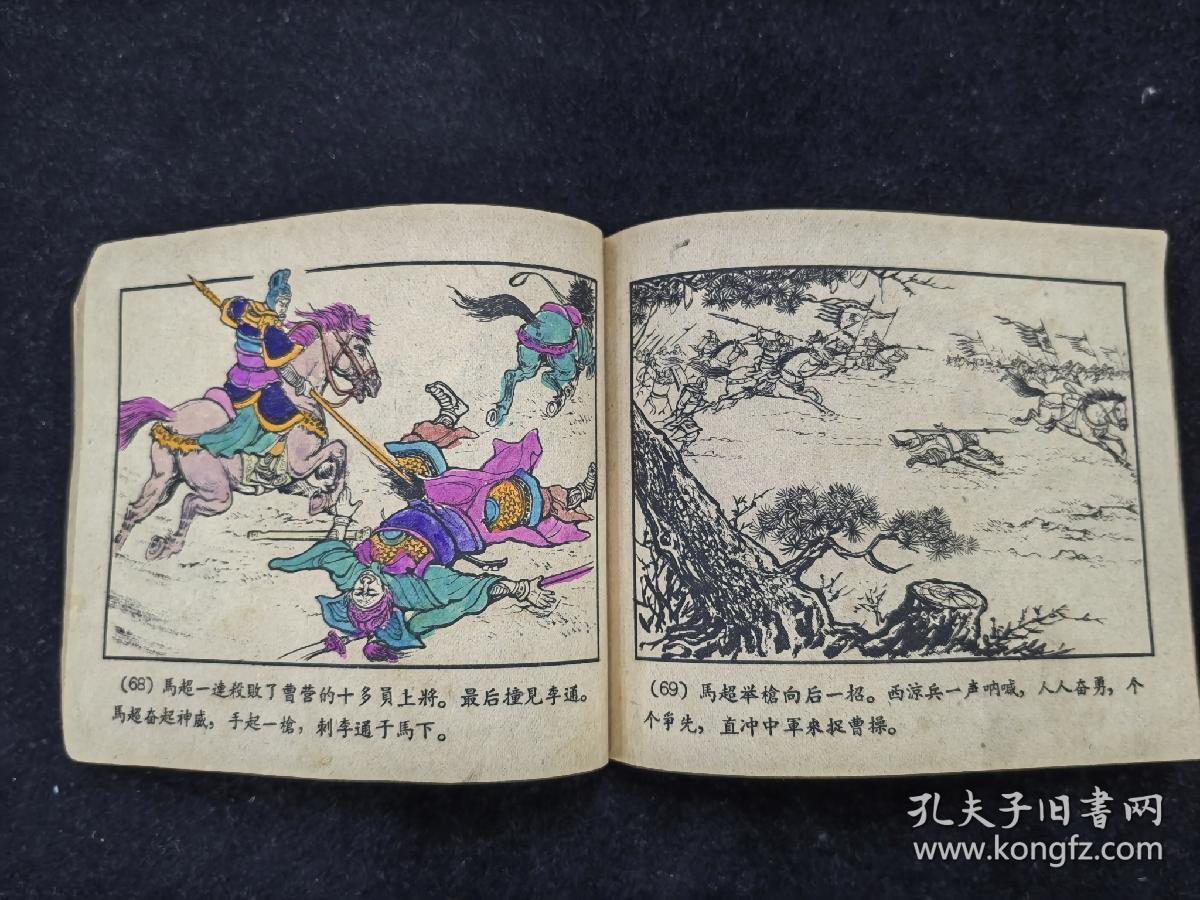 (68) 馬超一連殺敗了曹营的十多員上將。最后撞見李通。
馬超奋起神威，手起一槍，刺李通于馬下。
(69) 馬超举槍向后一招。西涼兵一声吶喊，人人奋勇，个
个爭先，直冲中軍來捉曹操。
孔夫子旧書网
www.kongfz.com